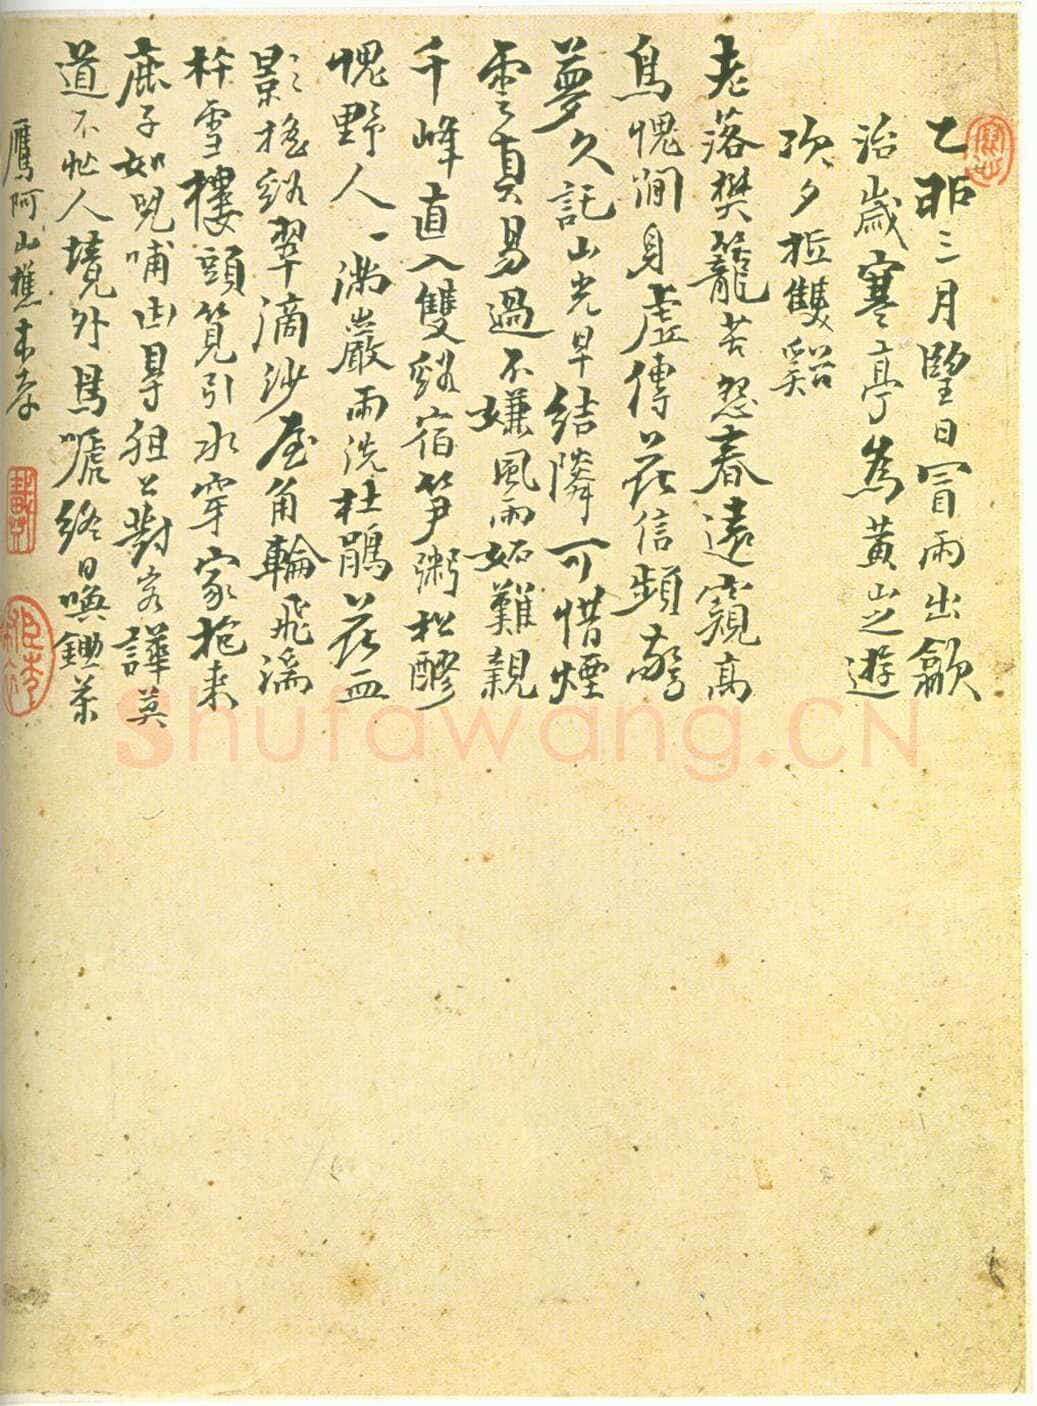 乙卯三月朢日冒雨出歙
治歲寒亭為黃山之遊
次夕抵雙谿
老落樊籠苦怨春遠窺高
鳥愧潤身虛傳花信頻驚
夢久託山光早結隣可惜煙
雲真易過不嫌風雨妬難親
千峰直入雙谿宿筍粥松醪
愧野人一滿巖雨洗杜鵑花血
影搖谿翠滴沙屋角輪飛濤
杵雪樓頭筧引水穿家抱來
鹿子如兒哺白首狙公對客譁莫
道不他人境外馬嘶終日喚鋤茶
鷹阿山樵
Shufawang.CN